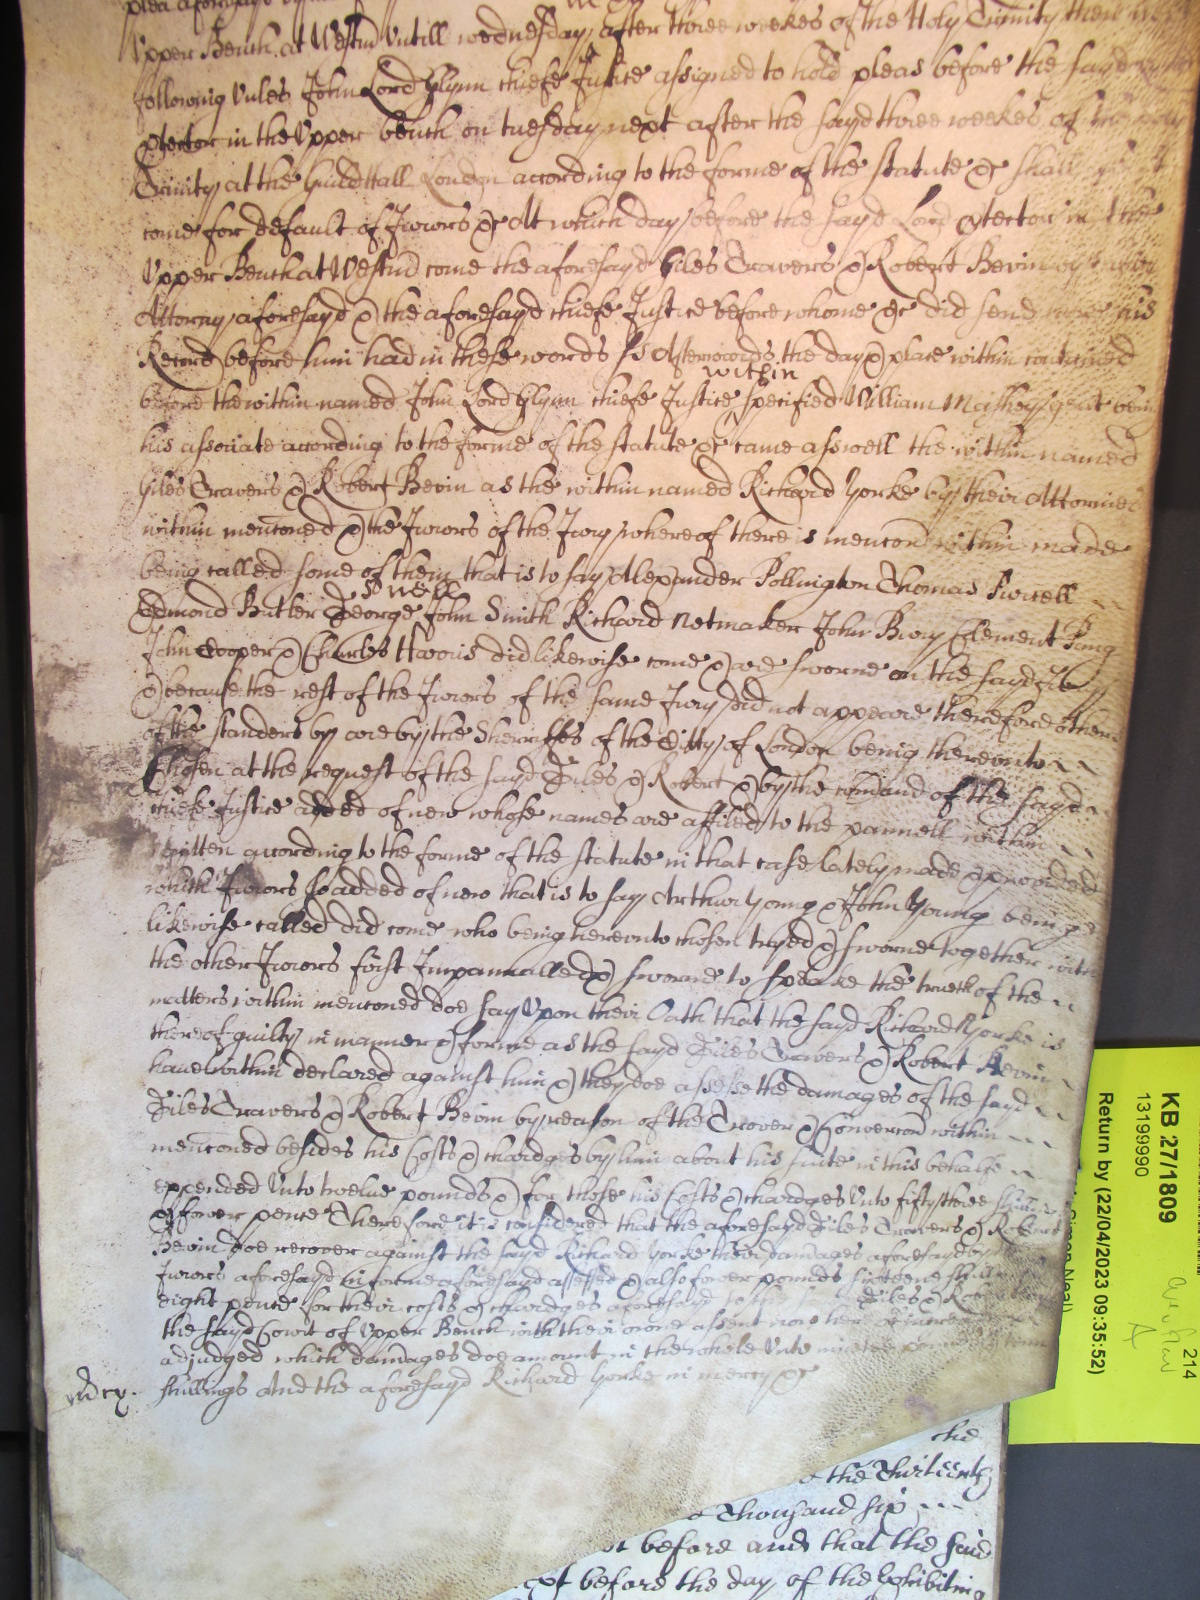 plea aforesayd
Upper Bench at Westm̃ Untill wednesday after three weekes of the Holy Trinity then
following Unles John Lord Glynn chiefe Justice assigned to hold pleas before the sayd
ptector in the Upper bench on tuesday next after the sayd three weekes of the Holy
Trinity at the Guildhall London according to the forme of the statute &c shall
come for default of Jurors &c At which day before the sayd Lord ptector in the
Upper Bench at Westm̃ come the aforesayd Giles Travers & Robert Bevin by their
Attorny aforesayd & the aforesayd chiefe Justice before whome &c did send here his
Record before him had in these words ss Afterwards the day & place within conteined
within
before the within named John Lord Glynn chiefe Justice specified William Maskey gent being
his associate according to the forme of the statute &c came aswell the within named
Giles Travers & Robert Bevin as the within named Richard Yorke by their Attornies
within menc̃oned & the Jurors of the Jury whereof there is menc̃on within made
being called some of them that is to say Alexander Pollington Thomas Purcell
Sowell
Edmond Butler George John Smith Richard Netmaker John Bury Clement Pung
John Cooper & Charles Harris did likewise come & are sworne on the sayd Jury
& because the rest of the Jurors of the same Jury did not appeare therefore others
of the standers by are by the Sherriffes of the Citty of London being thereunto
Chosen at the request of the sayd Giles & Robert & by the com̃and of the sayd
chiefe Justice added of new whose names are affiled to the pannell within
written according to the forme of the statute in that case lately made & provided
which Jurors so added of new that is to say Arthur Young & John Young being
likewise called did come who being hereunto chosen tryed & sworne together with
the other Jurors first Impannalled & sworne to speake the trueth of the
matters within menc̃oned doe say Upon their Oath that the sayd Richard Yorke is
thereof guilty in manner & forme as the sayd Giles Travers & Robert Bevin
have within declared against him & they doe assesse the damages of the sayd
Giles Travers & Robert Bevin by reason of the Trover & Converc̃on within
menc̃oned besides his Costs & chardges by him about his suite in this behalfe
expended Unto twelve pounds & for those his Costs & chardges Unto fifty three shillings
& fower pence Therefore it is considered that the aforesayd Giles Travers & Robert
Bevin doe recover against the sayd Richard Yorke their damages aforesayd by the
Jurors aforesayd in forme aforesayd assessed & also fower pounds sixteene shillings
eight pence for their costs & chardges aforesayd to the Giles & Robert
the sayd Court of Upper Bench with their owne assent now here of increase
adjudged which damages doe amount in the whole Unto nineteene pounds
shillings And the aforesayd Richard Yorke in mercy &c
the
the Thirteenth
Thousand six
before and that the said
before the day of the Exhibiting
KB 27/1809
13199990
Return by (22/04/2023 09:35:52)
214